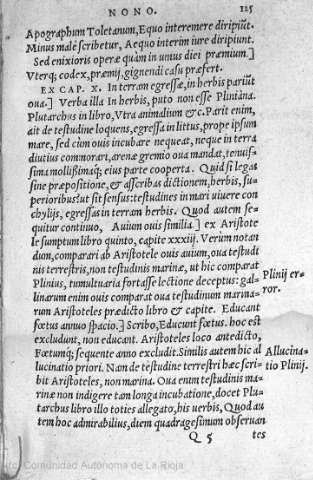 NONO. 125
Apographum Toletanum, Equo interemere diripiũt.
Minus male scribetur, Aequo interim iure diripiunt.
Sed enixioris operæ quàm in unius diei præmium.]
Vterq; codex, præmij, gignendi casu præfert.
EX CAP. X. In terram egressæ, in herbis pariũt
oua.] Verba illa In herbis, puto non esse Pliniana.
Plutarchus in libro, Vtra animalium &c. Parit enim,
ait de testudine loquens, egressa in littus, prope ipsum
mare, sed cùm ouis incubare nequeat, neque in terra
diutius commorari, arenæ gremio oua mandat, tenuis-
sima mollissimaq; eius parte cooperta. Quid si legas
sine præpositione, & asscribas dictionem, herbis, su-
perioribus? ut sit sensus: testudines in mari uiuere con
chylijs, egressas in terram herbis. Quod autem se-
quitur continuo, Auium ouis similia.] ex Aristote
le sumptum libro quinto, capite xxxiij. Verùm notan
dum, comparari ab Aristotele ouis auium, oua testudi
nis terrestris, non testudinis marinæ, ut hic comparat
Plinius, tumultuaria fortasse lectione deceptus: gal-
linarum enim ouis comparat oua testudinum marina-
rum Aristoteles prædicto libro & capite. Educant
fœtus annuo spacio.] Scribo, Educunt fœtus. hoc est
excludunt, non educant. Aristoteles loco antedicto,
Fœtumq; sequente anno excludit. Similis autem hic al
lucinatio priori. Nam de testudine terrestri hæc scri-
bit Aristoteles, non marina. Oua enim testudinis ma-
rinæ non indigere tam longa incubatione, docet Plu-
tarchus libro illo toties allegato, his uerbis, Quod au
tem hoc admirabilius, diem quadragesimum obseruan
Q 5 tes
Plinij er-
ror.
Allucina-
tio Plinij.
Comunidad Autónoma de La Rioja